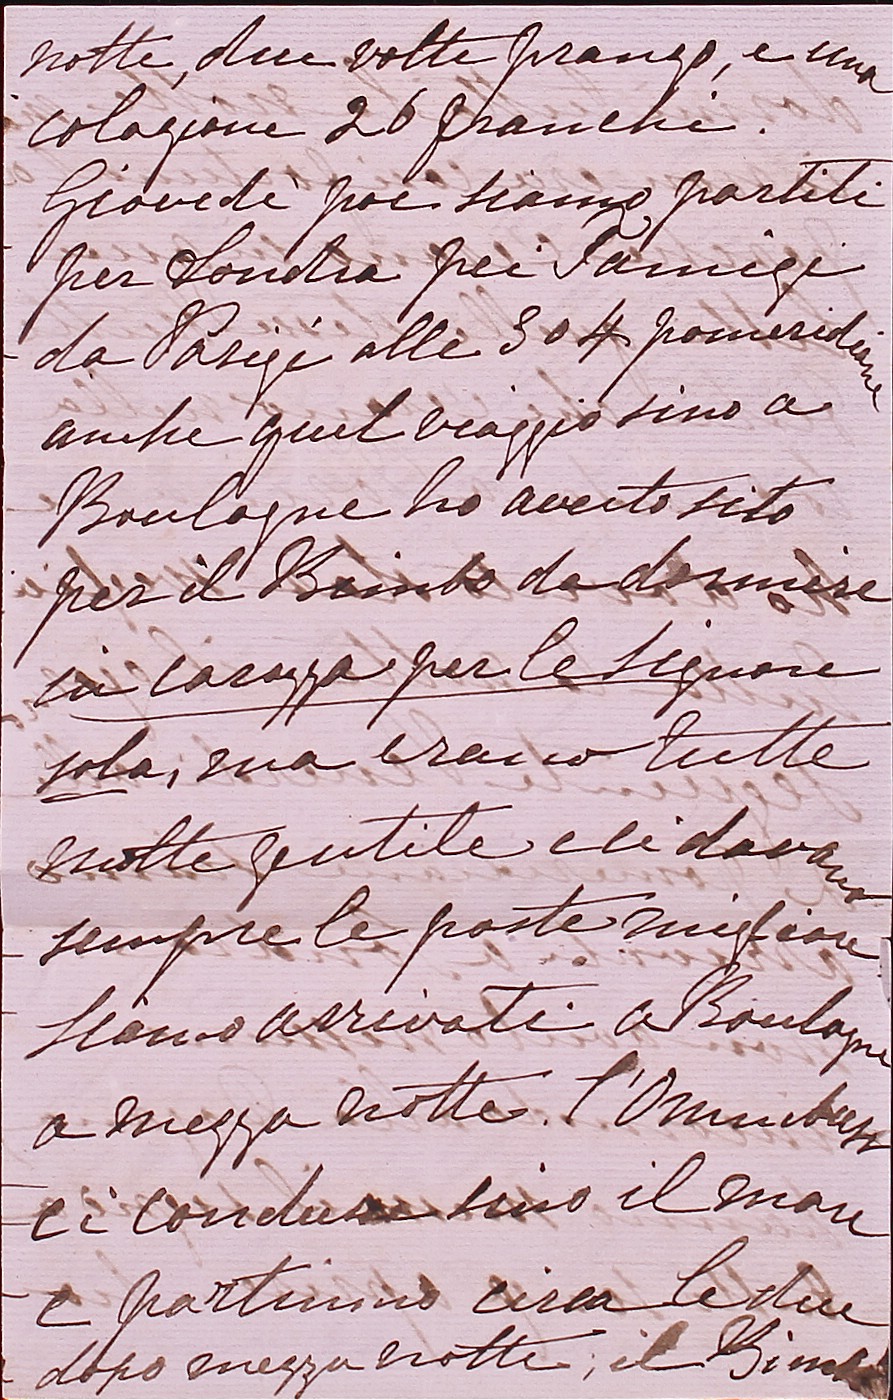 notte, due volte pranzo, e una
colazione 26 franchi.
Giovedì poi siamo partiti
per Londra pei Tamigi
da Parigi alle 3 o 4 pomeridiane
anche quel viaggio sino a
Boulogne ho avuto sito
per il Bimbo da dormire
in carozza per le Signore
sola, ma erano tutte
molte gentile e ci davano
sempre le poste migliore
siamo arrivati a Boulogne
a mezza notte. l'Omnibus
ci conduse sino il mare
e partimmo circa le due
dopo mezza notte, il Bimbo